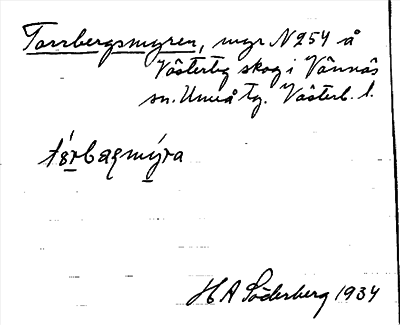 Torrbergsmyren, myr N 254 å
Västerby skog i Vännäs
sn. Umeå tg. Västerb. l.
tɜrbaɡmýra
H A Söderberg 1934